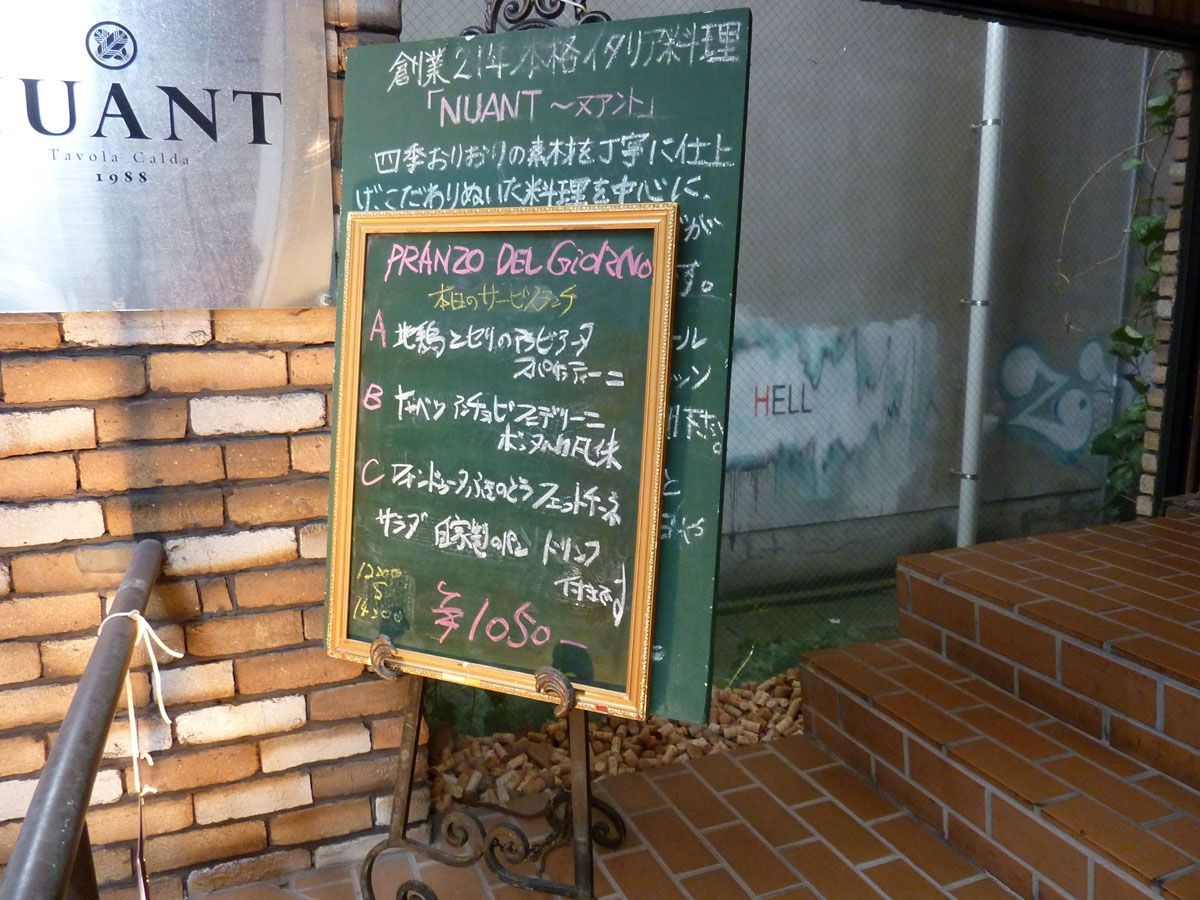 NUANT
Tavola Calda
1988
創業21年本格イタリア料理
「NUANT 〜ヌアント」
四季おりおりの素材を丁寧に仕上
げ、こだわりぬいた料理を中心に、
が
す。
ール
ッン
下さい。
と
PRANZO DEL GIORNO
本日のサービスランチ
A 地鶏とセリのアラビアータ
スパゲッティーニ
B キャベツ アンチョビ フェデリーニ
ボンヌ風
C フォンドゥータ ふきのとう フェットチーネ
サラダ 自家製のパン ドリンク
付きます
1200
S
14:00
¥1050-
HELL